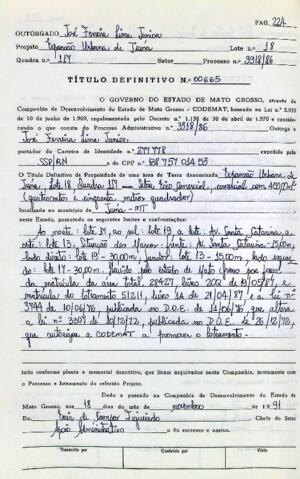 PAG. 224
OUTORGADO José Ferreira Lima Junior
Projeto Expansão Urbana de Juina Lote n.º 18
Quadra n.º 117 Setor Processo n.º 3918/86
TÍTULO DEFINITIVO N.º 00665
O GOVERNO DO ESTADO DE MATO GROSSO, através da
Companhia de Desenvolvimento do Estado de Mato Grosso - CODEMAT, baseado na Lei n.º
10 de junho de 1.969, regulamentada pelo Decreto n.º 1.138 de 30 de abril de 1.970 e considerando
o que consta do Processo Administrativo n.º 3918/86 Outorga a
José Ferreira Lima Junior
portador da Carteira de Identidade n.º expedida pela
SSP/RN e do CPF n.º
O Título Definitivo de Propriedade de uma área de Terra denominada Expansão Urbana de
Juina, Lote 18 Quadra 117 comercial com 450,00m²
(quatrocentos e cinquenta metros quadrados)
localizada no município de Juina - MT
neste Estado, passando os seguintes limites e confrontações:
Ao norte: lote 17, ao sul: lote 19, a leste: Av. Santa Catarina, e
oeste: lote 13. Situação dos Marcos: frente: Av. Santa Catarina - 15,00m,
lado direito: lote 19 - 30,00m, fundos: lote 13 - 15,00m, lado esquerdo:
lote 17 - 30,00m. Havido pelo Estado de Mato Grosso por
da matrícula da área total, 28427, livro 202, 19/05/87, e
matrícula do loteamento 51211, livro 21/04/87 e a Lei nº
3744 de 10/06/76, publicada no D.O.E. de 14/06/76, que altera
a lei nº 3307 de 18/12/72, publicada no D.O.E. de 26/12/72,
que autoriza a CODEMAT a promover o loteamento.
tudo conforme planta e memorial descritivo, que ficam arquivados nesta Companhia, juntamente com
o Processo e loteamento do referido Projeto.
Dado e passado na Companhia de Desenvolvimento do Estado de
Mato Grosso, aos 18 dias do mês de novembro de 1991
Eu, de Campos Figueiredo Chefe do Setor
Apoio Administrativo o fiz escrever e assino.
Transcrito por Conferido por Visto